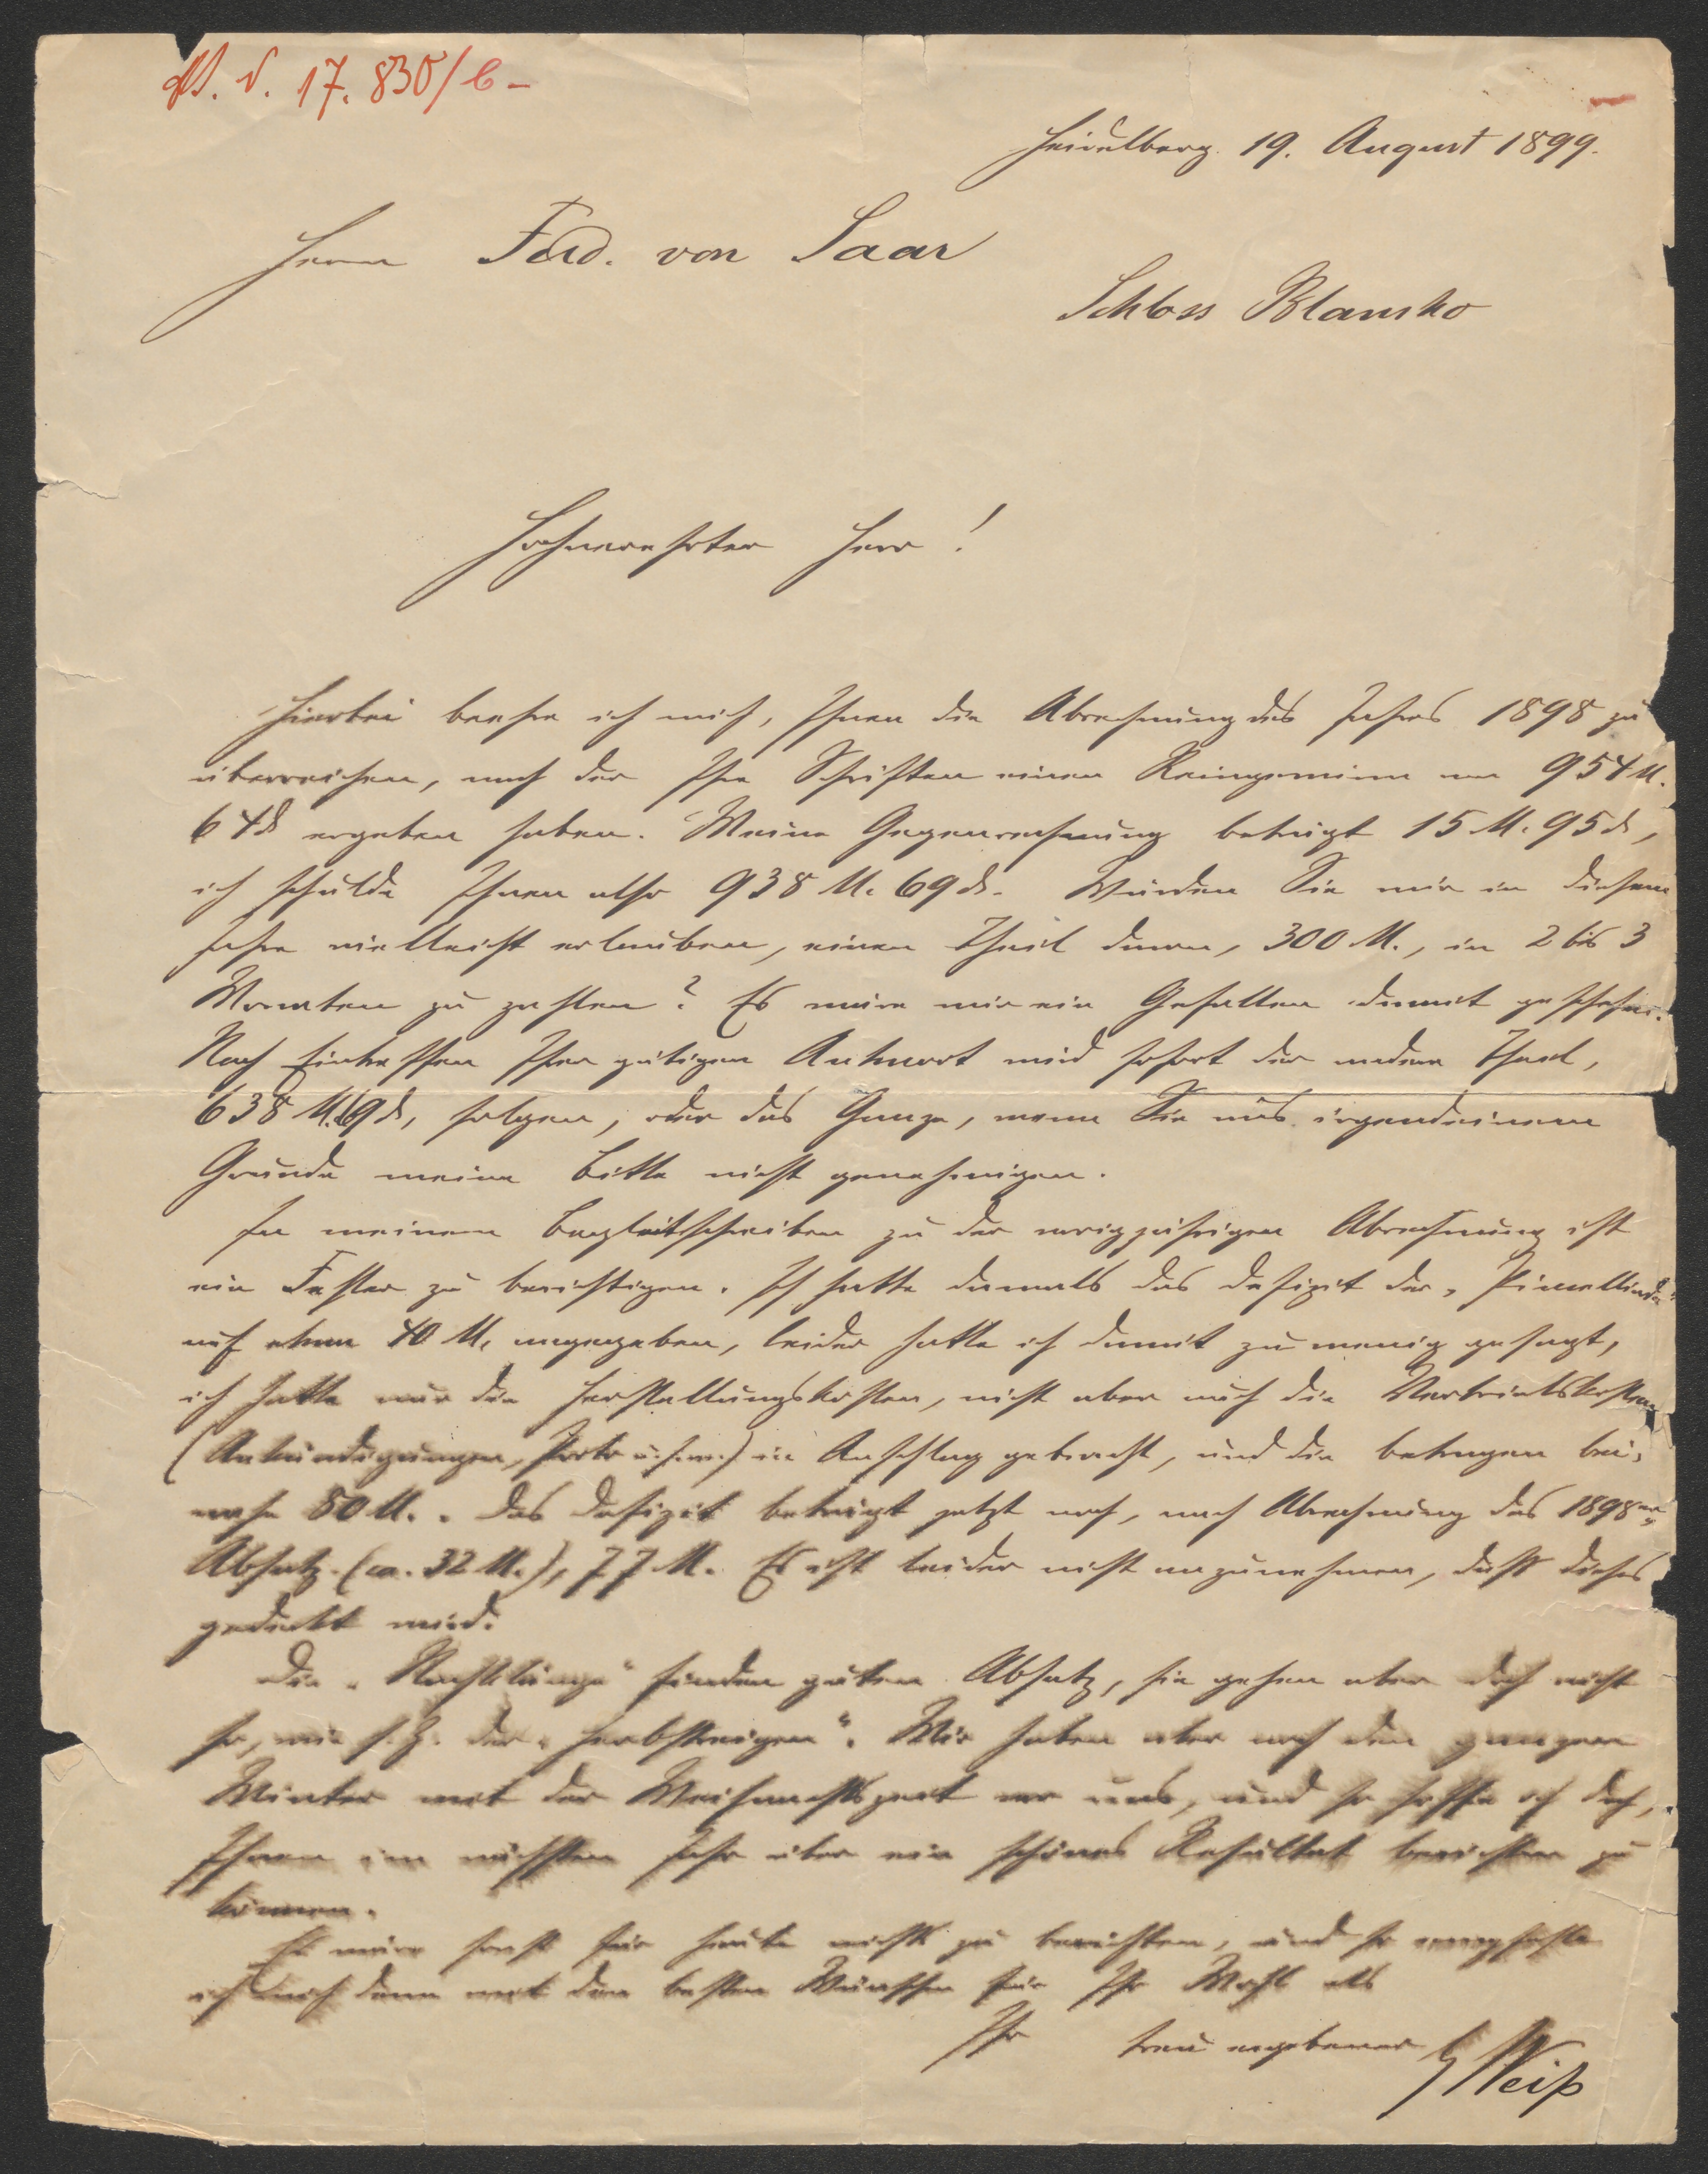 17.830/6-
Heidelberg. 19. August 1899.
Herrn Ferd. von Saar
Schloss Blansko
Hochverehrter Herr!
Hierbei beehre ich mich, Ihnen die Abrechnung des Jahres 1898 zu
überreichen, nach der Ihre Schriften einen Reingewinn von 954 M.
64 ₰ ergeben haben. Meine Gegenrechnung beträgt 15 M. 95 ₰,
ich schulde Ihnen also 938 M. 69 ₰. Würden Sie mir in diesem
Jahre vielleicht erlauben, einen Theil davon, 300 M., in 2 bis 3
Monaten zu zahlen? Es wäre mir ein Gefallen damit geschehen.
Nach Eintreffen Ihrer gütigen Antwort wird sofort der andere Theil,
638 M. 69 ₰, folgen, oder das Ganze, wenn Sie aus irgendeinem
Grunde meine Bitte nicht genehmigen.
In meinem Begleitschreiben zu der vorigjährigen Abrechnung ist
ein Fehler zu berichtigen. Ich hatte damals das Defizit der „Pincelliade“
auf etwa 40 M. angegeben, leider hatte ich damit zu wenig gesagt,
ich hatte nur die Herstellungskosten, nicht aber auch die Vertriebskosten
(Ankündigungen, Porto u.s.w.) in Anschlag gebracht, und die betragen bei-
nahe 80 M.. Das Defizit beträgt jetzt noch, nach Abrechnung des 1898er
Absatz. (ca. 32 M.), 77 M. Es ist leider nicht anzunehmen, daß dieses
gedeckt wird.
Die „Nachklänge“ finden guten Absatz, sie gehen aber doch nicht
so, wie s. Z. der „Herbstreigen“. Wir haben aber noch den ganzen
Winter mit der Weihnachtszeit vor uns, und so hoffe ich doch,
Ihnen im nächsten Jahr über ein schönes Resultat berichten zu
können.
Es wäre sonst für heute nichts zu berichten, und so empfehle
ich mich denn mit den besten Wünschen für Ihr Wohl als
Ihr treu ergebener
G Weiß